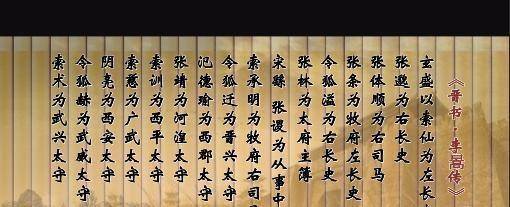 《晋书·李暠传》
玄盛以索仙为左长
张邈为右长史
张体顺为右司马
张条为牧府左长史
令狐溢为右长史
张林为太府主簿
宋繇 张谡为从事中
索承明为牧府右司
令狐迁为晋兴太守
氾德瑜为西郡太守
张靖为河湟太守
索训为西平太守
索慈为广武太守
阴亮为西安太守
令狐赫为武威太守
索术为武兴太守